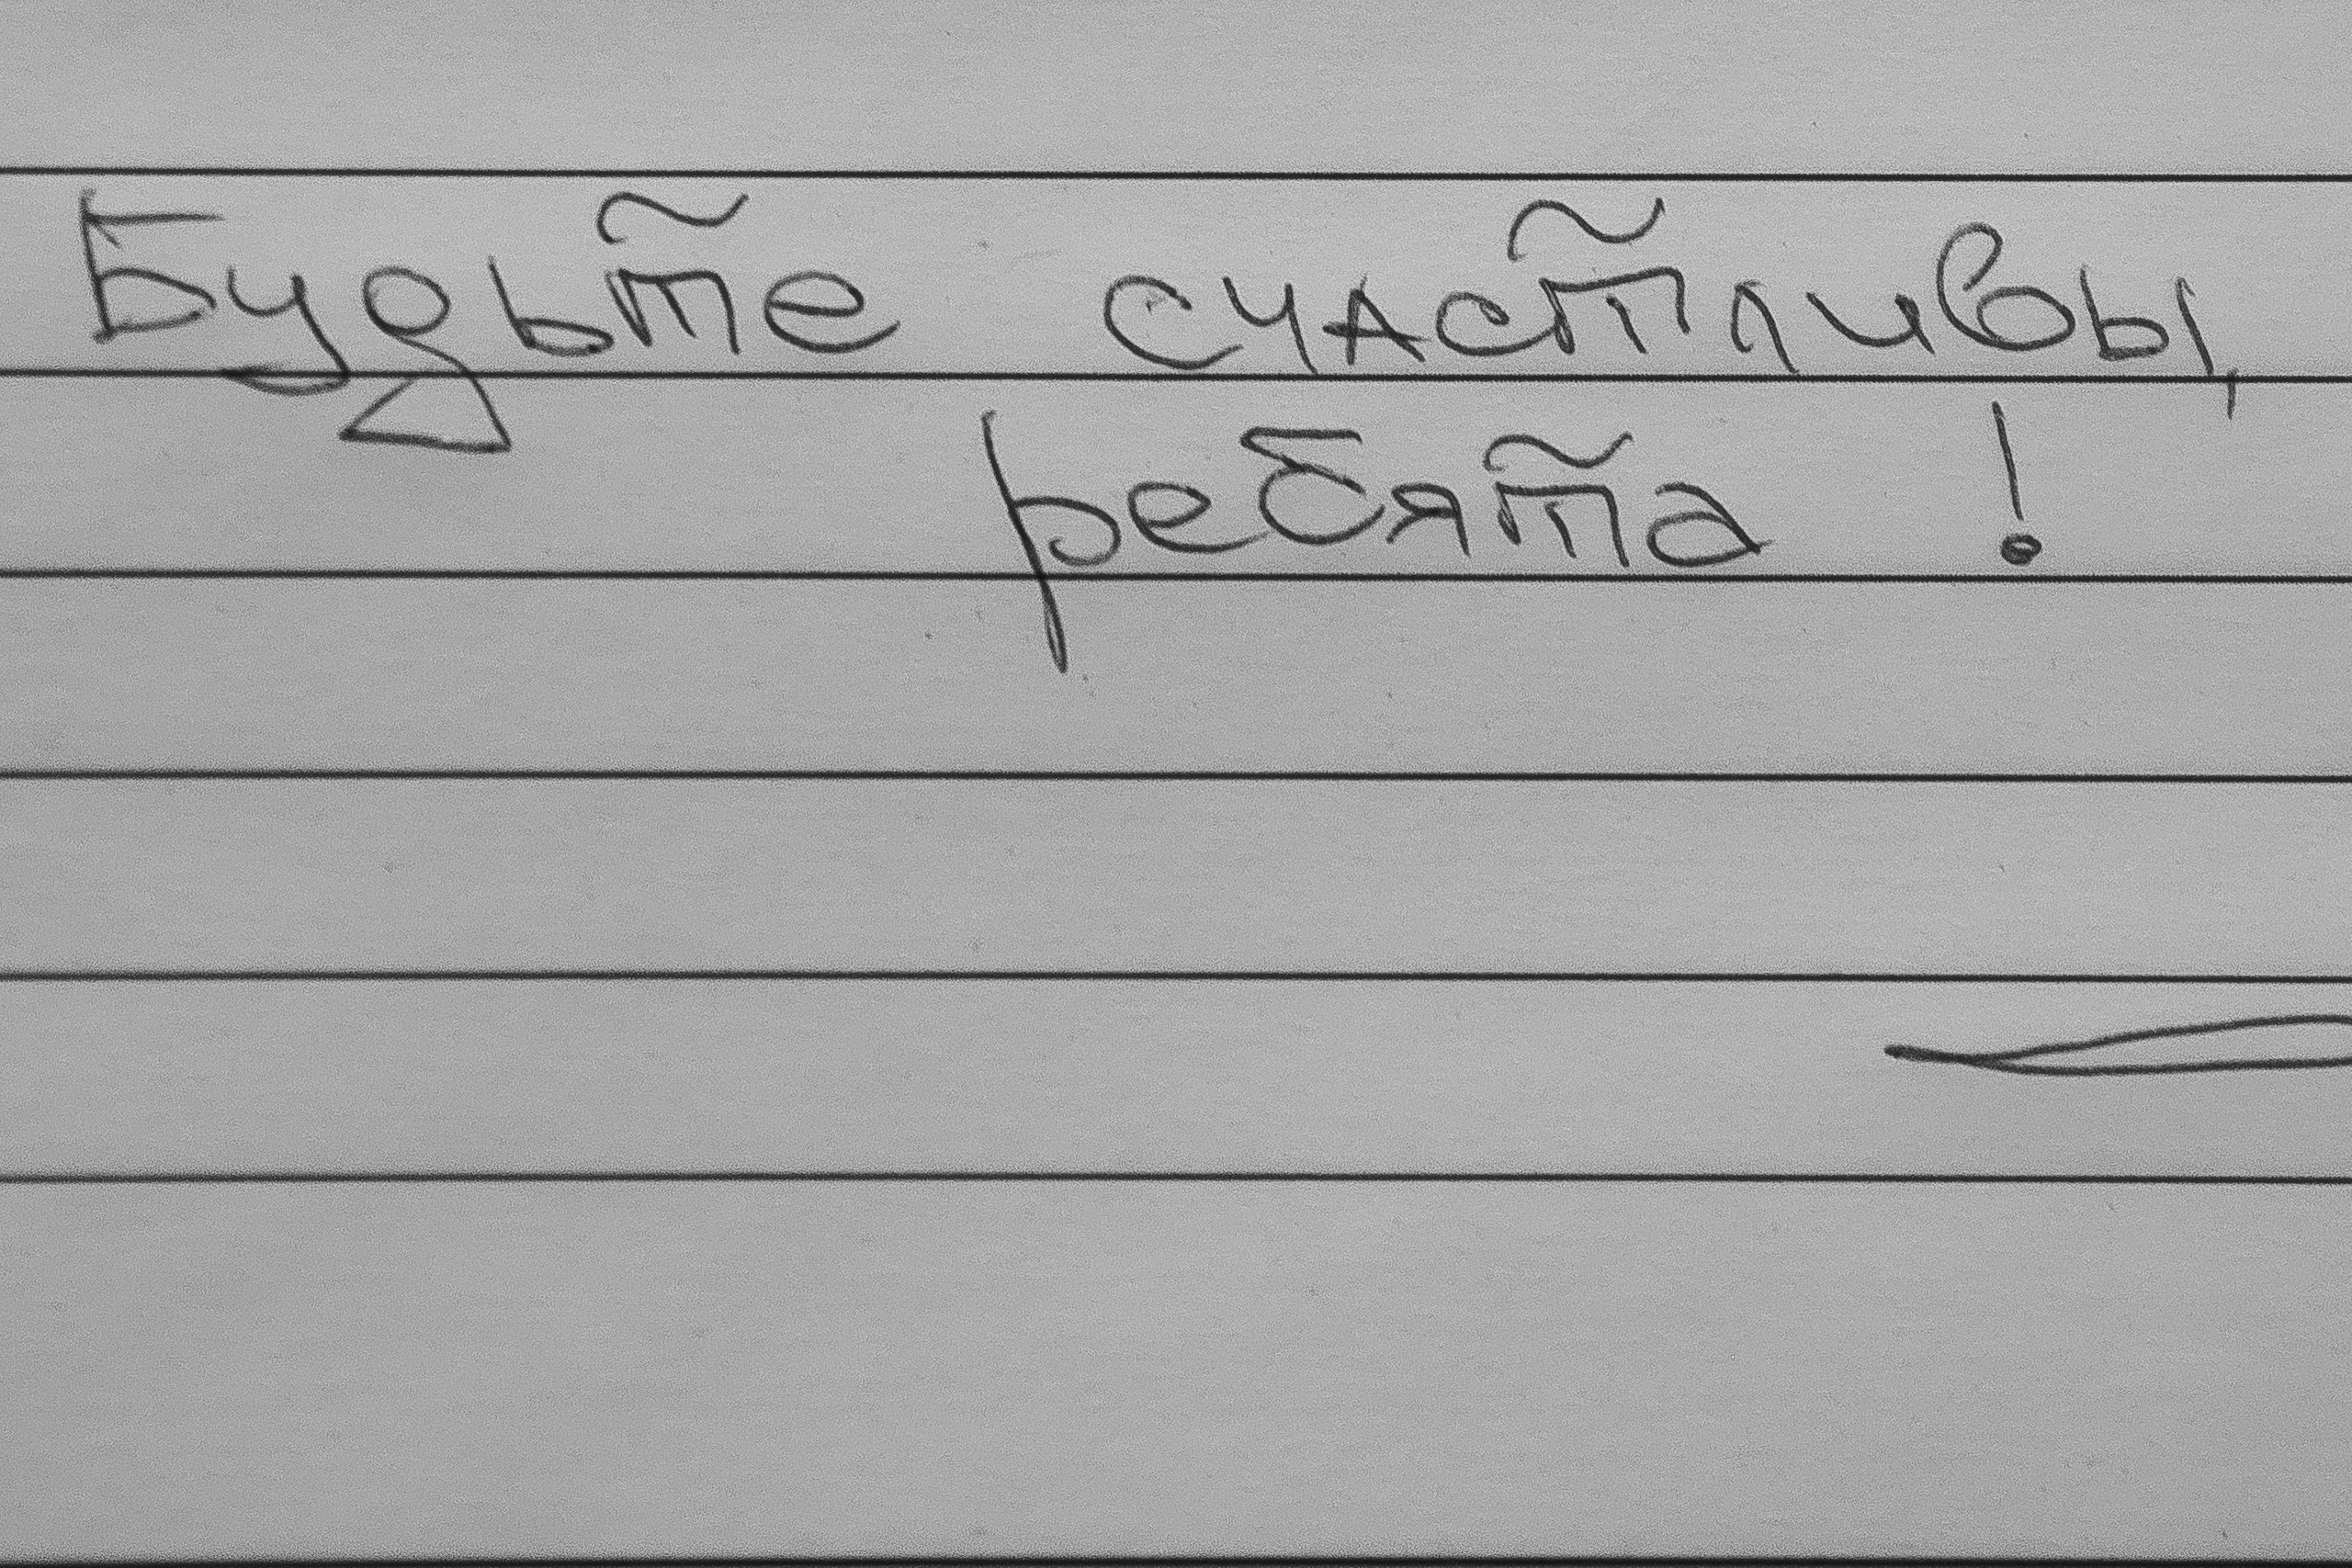 Будьте счастливы,
ребята !